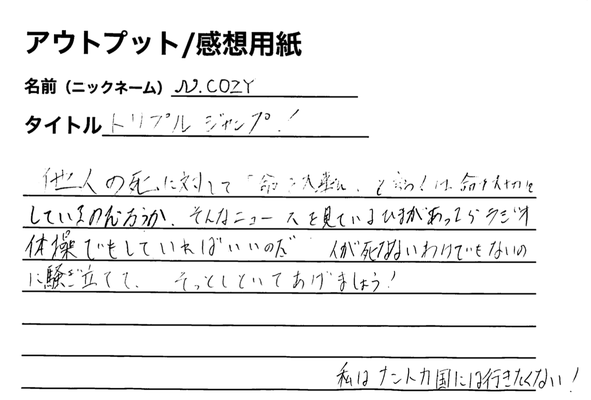 アウトプット/感想用紙
名前（ニックネーム） N.COZY
タイトル トリプルジャンプ！
他人の死に対して「命 と言う人は、命を大切に
しているのだろうか、そんなニュースを見ているひまがあったらラジオ
体操でもしていればいいのだ 人が死なないわけでもないの
に騒ぎ立てて、そっとしといてあげましょう！
私はナントカ国には行きたくない！